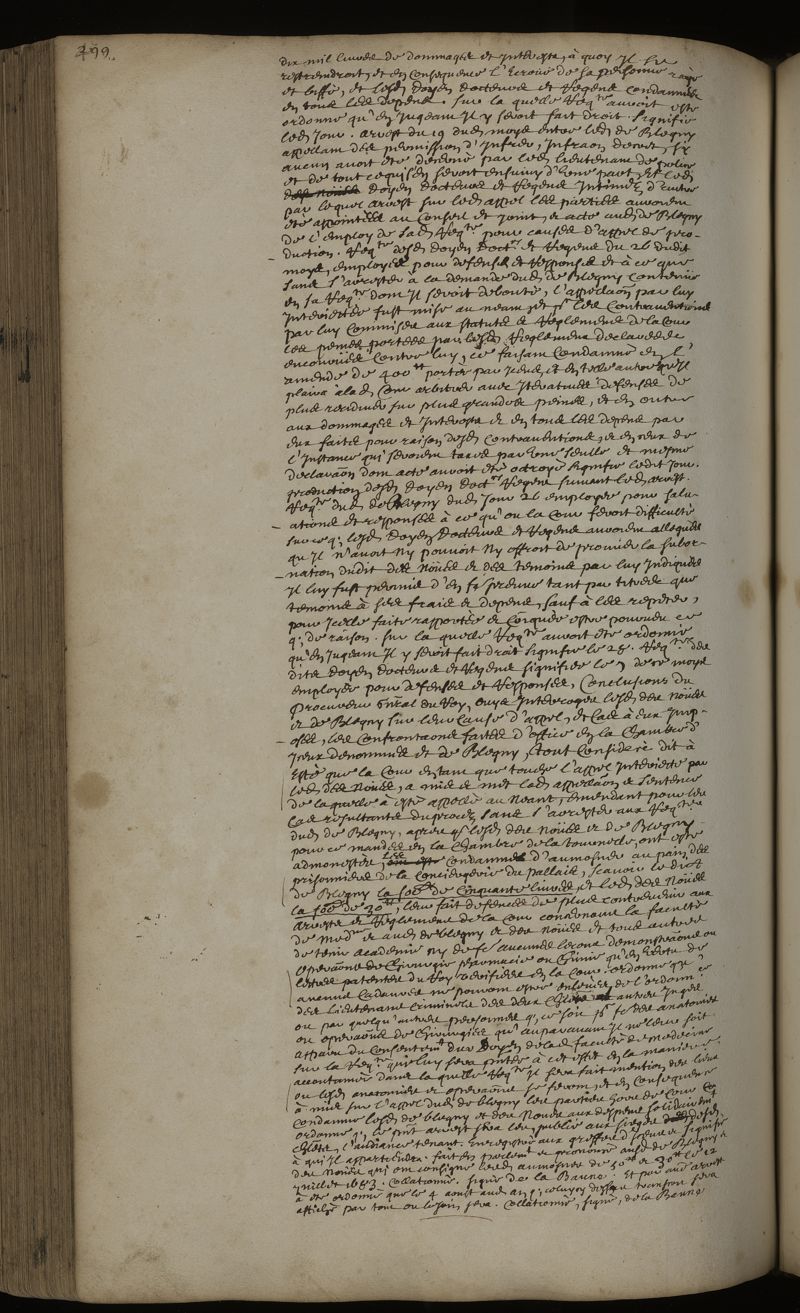 499.
dix mil livres de dommages et interests, a quoy Il se
restraindroit, et en consequence l'Ecroue de sa personne rayé
et biffé, et lesd. doyen docteurs et Regens condamnés
en tous les depens. sur la quelle Reqte auroit esté
ordonné qu'en Jugeant Il y seroit fait droit. signifié
led. Jour. arrest du 19 dud. moys entre led. de Blegny
appellant des permission d'Informer, Information decret, si
aucun avoit esté decerné par led. lieutenant de police
et de tout ce qui s'en seroit ensuivy d'une part, Et lesd.
doyen docteurs et Regens Intimez d'autre
par lequel arrest sur led. appel les parties auroient
été appointées au Conseil et Joint, & acte aud. de Blegny
de l'employ de lad. Reqte pour causes d'appel & pro-
duction. Reqte desd. doyen doctrs et Regens du 26 dudit
moys, employée pour defenses et Responses et à ce que
sans s'arrester à la demande dud. de Blegny contenue
en sa Reqte dont Il seroit debouté, l'appellaon par luy
Interjettée fust mise au neant
par luy commises aux statuts & Reglemens de la Cour
les peines portées par lesd. Reglemens declarées
encourues contre luy, ce faisant condamné en l'
amende de 400lt porter par Iceux, et en telle autre qu'Il
plaira à lad. Cour arbitrer avec Iteratives defenses de
plus recidiver sur plus grandes peines, et en outre
aux dommages et Interests & en tous les depens par
eux faits pour raison desd. contraventions, & en ceux de
l'Instance qui seroient taxés par une seulle et mesme
declaraon dont acte auroit été octroyé signifié ledit Jour.
production desd. doyen doctrs Regens suivant led. arrest.
Reqte dud. de Blegny dud. Jour 26 employée pour salv-
ations et responses à ce qu'où la Cour feroit difficulté
sur ce q; lesd. doyen docteurs et Regens auroient allegué
qu'Il n'avoit ny pouvoit ny offroit de prouver la subor-
nation dudit des Noües & des temoins par luy Indiqués
Il luy fust permis d'en fe preuve tant par titres que
temoins à ses frais & depens, sauf à les repeter,
pour Icelle faite rapportée & Coiquée estre pourveu ce
q; de raison. sur la quelle Reqte auroit été ordonné
qu'en Jugeant Il y seroit fait droit signifié le 28. Reqte des
dits doyen docteurs et Regens signifiée le 7 de ce moys
employée pour defenses et Responses, Conclusions du
Procureur gnral du Roy, ouys Interrogez lesd. des Noües
& de Blegny sur leurs causes d'appel, et cas à eux Imp-
osés, les confrontaons faites d'office en la Chambre d'
Iceux denommés et de Blegny, tout consideré dit à
Esté que la Cour en tant que touche l'appel Interjetté par
led. des Noües, a mis & met lad. appellaon & sentence
de laquelle à esté appellé au Neant, emendant pour les
cas resultants du procez, sans s'arrester aux Reqtes
dud. de Blegny, après q; lesd. des Noües & de Blegny
pour ce mandés en la Chambre de la tournelle, ont esté
admonestés, les condamne d'aumosner au pain des
prisonniers de la Conciergerie du Pallais, scavoir le dict
de Blegny la soe de cinquante livres et led. des Noües
la soe de 30lt, leur fait defences de plus contrevenir aux
arrests & Reglemens de la Cour concernant la faculté
de Medne & aud. de blegny & des Noües et tous autres
de tenir academie ny de fe aucunes leçons demonstraons ou
operaons de Chirurgie pharmacie ou Chimie qu'en vertu de
lettres patentes du Roy verifiées en la Cour. ordonne que
aucuns cadavres ne pourront estre enlevés de l'ordonne
des lieutenans criminels des deux Chlets autres Juges
ou par quelqu'autres personnes q; ce soit pr fe des anatomies
ou operaons de Chirurgies, qu'auparavant Il ne leur soit
apparu du Consentemt du doyen de lad. faculté de Medecine
sur la Reqte qui luy sera pntée à cet effet en la maniere
accoutumée dans laquelle Reqte Il sera fait mention des lieux
où lesd. anatomies & operaons se feront, et en consequence
à mis sur l'appel dud. de blegny les parties hors de Cour Et
condamne lesd. de blegny et des Noües aux depens solidairemt
ordonne q; le pnt arrest sera leu, publié aux sieges desd.
Chlets, l'audiance tenant. Enregistré aux greffes d'Iceux & signifié
à qu'Il appartiendra. fait en parlement & prononcé aud. de Blegny &
des Noües qui ont consigné lesd. aumosnes de 50lt & 30lt le 12
Juillet 1683. Collationné. signé de la Baune. Et puis aud. arrest
à été ordonné que le 4 aoust aud. an
affiché par tout où besoin sera. Collationné, signé, de la Baune